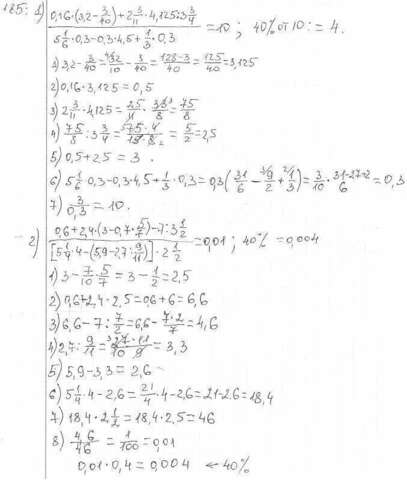 185: 1) (0,16·(3,2-3/40)+2 3/11·4,125:3 3/4)/(5 1/6·0,3-0,3·4,5+1/3·0,3)=10; 40% от 10:=4.
1) 3,2-3/40=32/10-3/40=(128-3)/40=125/40=3,125
2) 0,16·3,125=0,5
3) 2 3/11·4,125=25/11·33/8=75/8
4) 75/8:3 3/4=(75·4)/(15·8)=5/2=2,5
5) 0,5+25=3.
6) 5 1/6·0,3-0,3·4,5+1/3·0,3=0,3(31/6-9/2+1/3)=3/10·(31-27+2)/6=0,3
7) 3/0,3=10.
2) (0,6+2,4·(3-0,7·5/7)-7:3 1/2)/([5 1/4·4-(5,9-2,7:9/11)]·2 1/2)=0,01; 40%=0,004
1) 3-7/10·5/7=3-1/2=2,5
2) 0,6+2,4·2,5=0,6+6=6,6
3) 6,6-7:7/2=6,6-(7·2)/7=4,6
4) 2,7:9/11=(27·11)/(10·9)=3,3
5) 5,9-3,3=2,6
6) 5 1/4·4-2,6=21/4·4-2,6=21-2,6=18,4
7) 18,4·2 1/2=18,4·2,5=46
8) 4,6/46=1/100=0,01
0,01·0,4=0,004 ← 40%